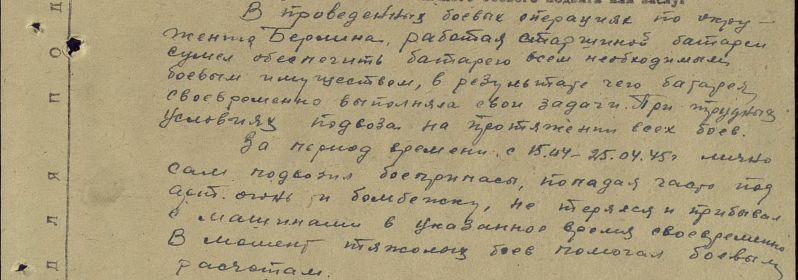 В проведенных боевых операциях по окру-
жению Берлина, работая старшиной батареи
сумел обеспечить батарею всем необходимым
боевым имуществом, в результате чего батарея
своевременно выполняла свои задачи. При трудных
условиях подвоза на протяжении всех боев.
За период времени с 15.04-25.04.45г лично
сам подвозил боеприпасы, попадая часто под
арт. огонь и бомбежку, не терялся и прибывал
с машинами в указанное время своевременно
В момент тяжолых боев помогал боевым
расчотам.
ДЛЯ ПОД